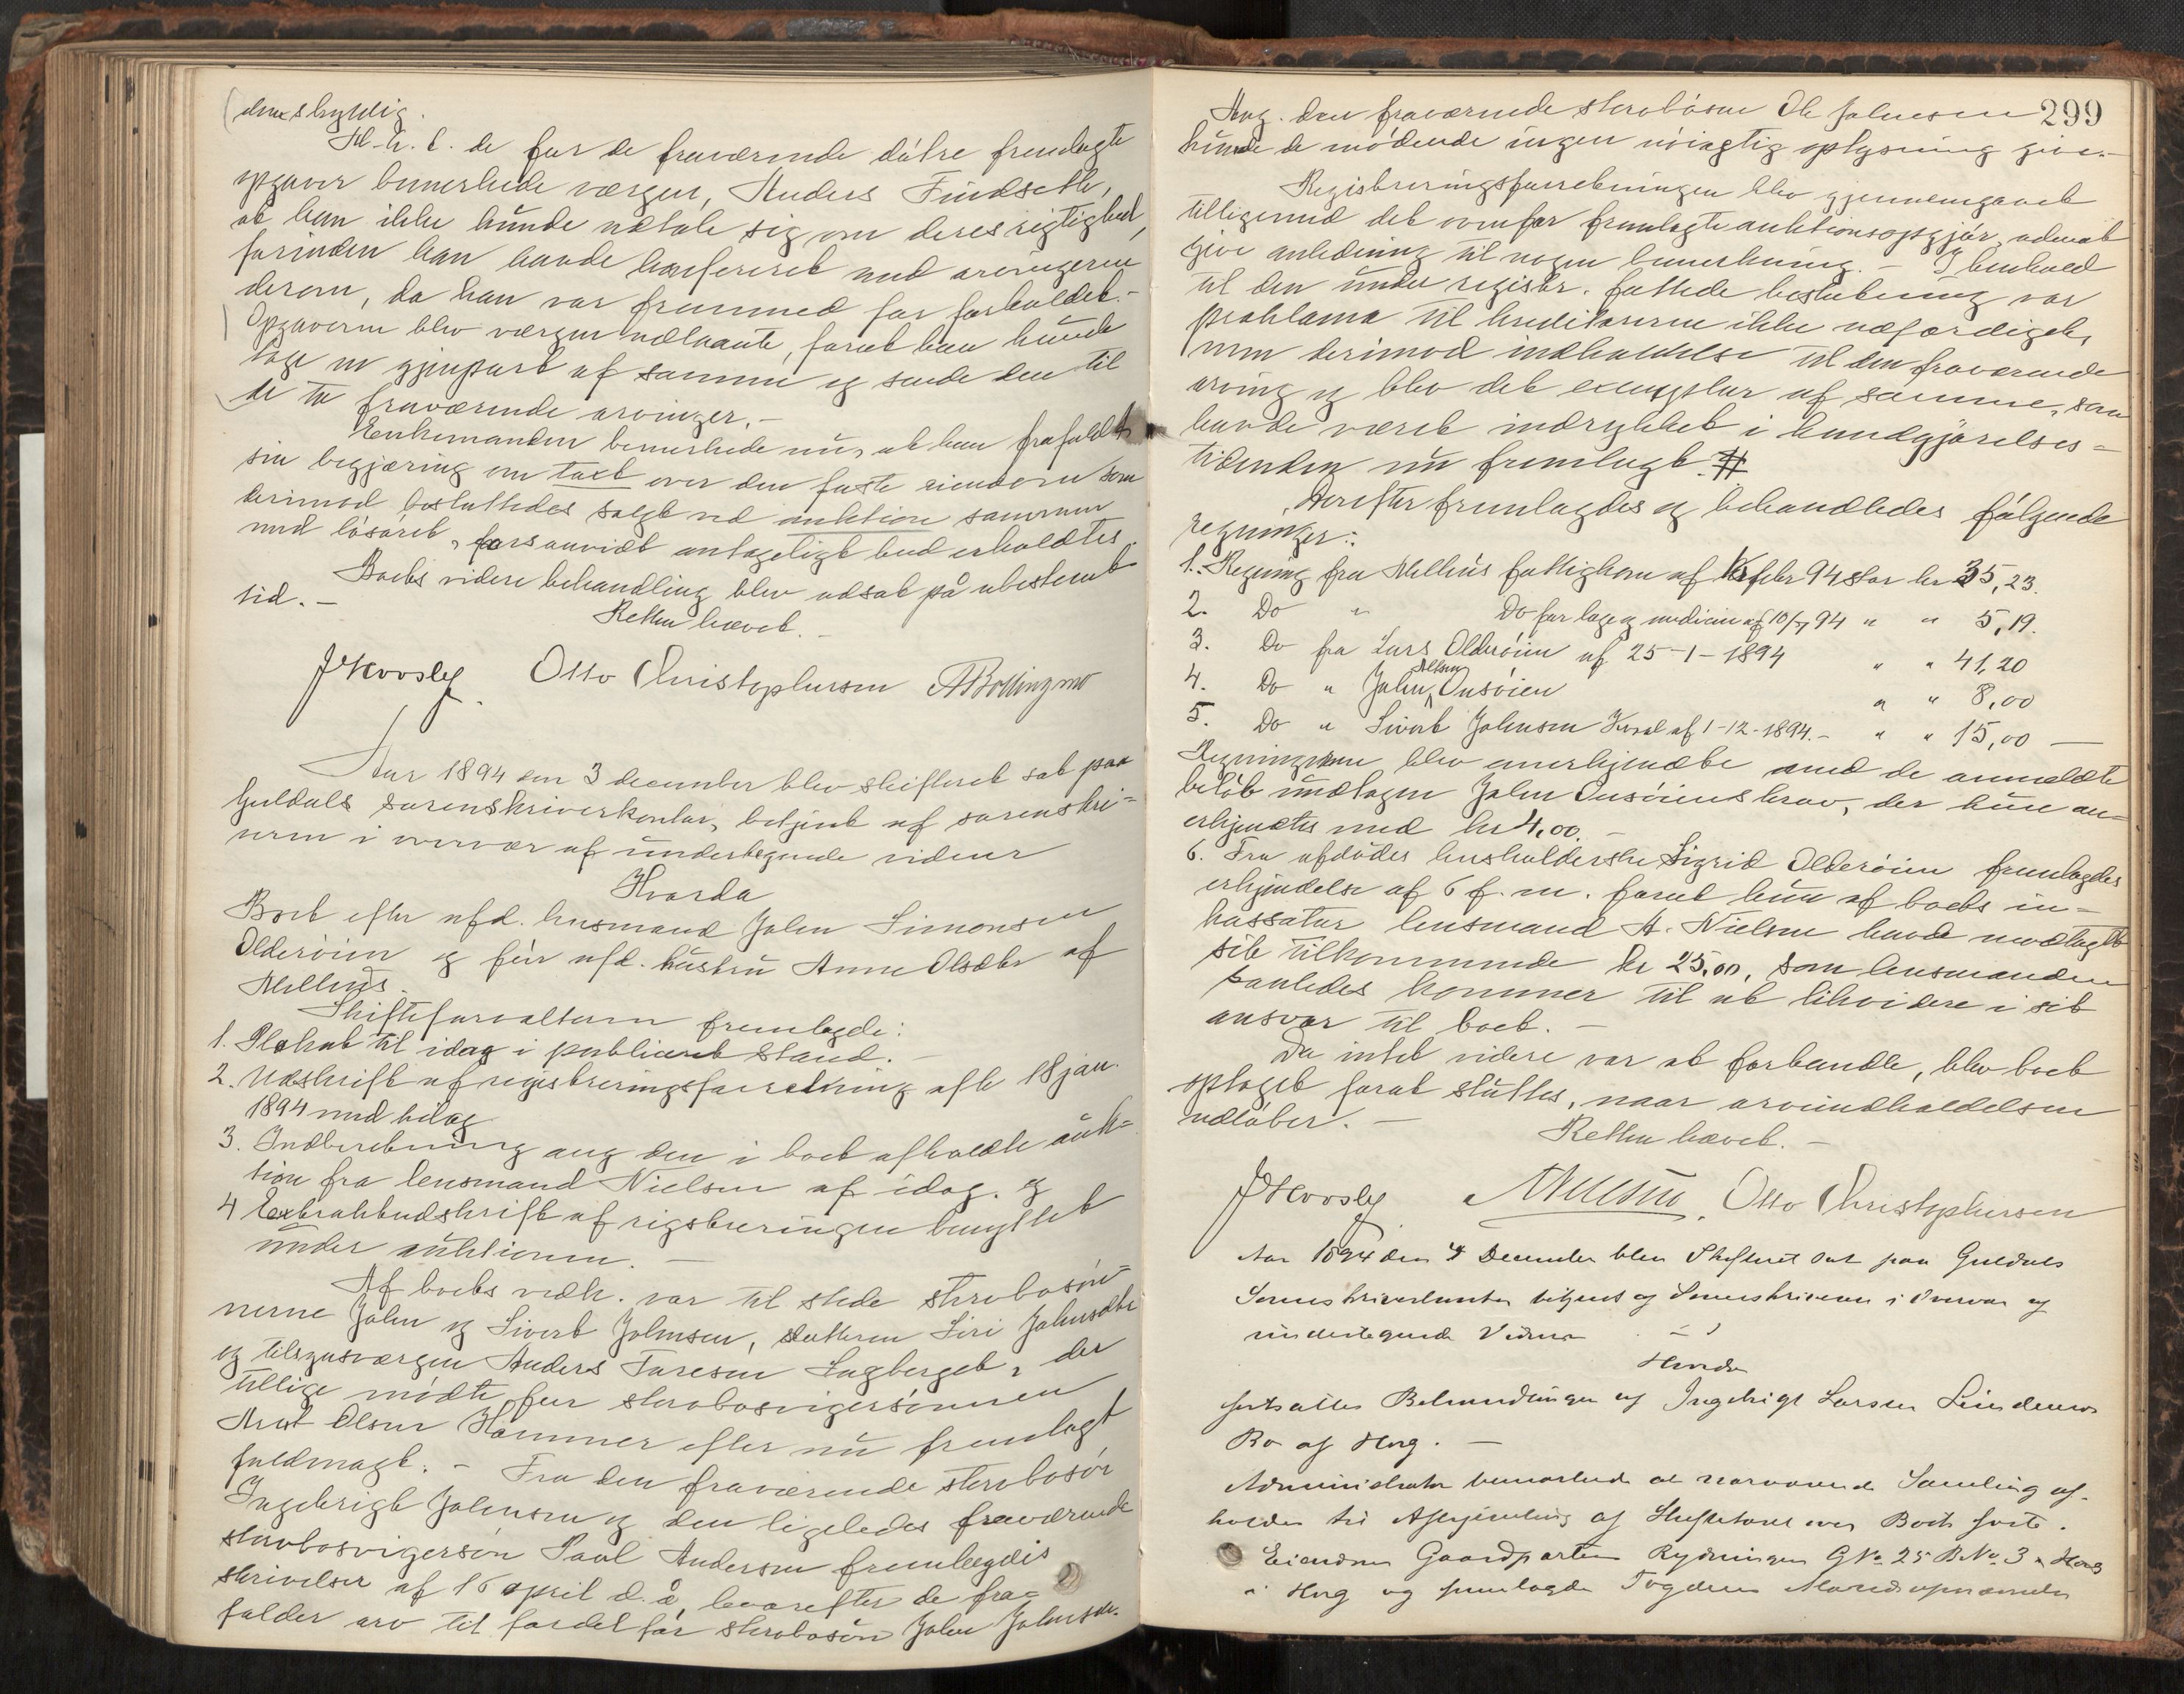 dem skyldig.
M. h. t. de for de fraværende døtre fremlagte
opgaver bemerkede værgen, Anders Findseth,
at han ikke kunde udtale sig om deres rigtighed,
forinden han havde konfereret med arvingerne
derom, da han var fremmed for forholdet.-
Opgaverne blev værgen udlaante, forat han kunde
tage en gjenpart af samme og sende den til
de to fraværende arvinger.-
Enkemanden bemerkede nu, at han frafaldt
sin begjæring om taxt over den faste eiendom som
derimod besluttedes solgt ved auktion sammen
med løsøret, forsaavidt antageligt bud erholdtes.
Boets videre behandling blev udsat på ubestemt
tid.-
Retten hævet.-
JHovsly. Otto Christophersen ABollingmo
Aar 1894 den 3 december blev skifteret sat paa
Guldals sorenskriverkontor, betjent af sorenskri-
veren i overvær af undertegnede vidner
Hvorda
Boet efter afd. husmand John Simonsen
Olderøien og før afd. hustru Anne Olsdtr af
Melhus.
Skifteforvalteren fremlagde:
1. Plakat til idag i publiceret stand.-
2. Udskrift af registreringsforretning afh 18 jan.
1894 med bilag
3. Indberetning ang den i boet afholdte auk-
tion fra lensmand Nielsen af idag. og
4 Extraktudskrift af rigstreringen benyttet
under auktionen.-
Af boets vedk. var til stede sterbosøn-
nerne John og Sivert Johnsen, datteren Siri Johnsdtr
og tilsynsværgen Anders Taresen Lagberget, der
tillige mødte for sterbosvigersønnen
Arnt Olsen Hammer efter nu fremlagt
fuldmagt.- Fra den fraværende sterbosøn
Ingebrigt Johnsen og den ligeledes fraværende
sterbosvigersøn Paul Andersen fremlagdes
skrivelser af 16 april d. å, hvorefter de fra-
falder arv til fordel for sterbosøn John Johnsen.
299
Ang. den fraværende sterbosøn Ole Johnsen
kunde de mødende ingen nøiagtig oplysning give.-
Registreringsforretningen blev gjennemgaaet
tilligemed det ovenfor fremlagte auktionsopgjør, uden at
give anledning til nogen bemerkning.- I henhold
til den under registr. fattede beslutning var
proklama til kreditorerne ikke udfærdiget,
men derimod indkaldelse til den fraværende
arving og blev det exemplar af samme, som
havde været indrykket i kundgjørelses-
tidenden nu fremlagt.
Derefter fremlagdes og behandledes følgende
regninger:
1. Regning fra Melhus fattigkom af febr 94 stor kr 35,23.
2. Do " Do for læge og medicin af 10/7 94 " " 5,19.
3. Do fra Lars Olderøien af 25-1-1894 " " 41,20
4. Do " John Olsen Onsøien " " 8,00
5. Do " Sivert Johnsen Kval af 1-12-1894.- " " 15,00
Regningerne blev anerkjendte med de anmeldte
beløb undtagen John Onsøiens krav, der kun an-
erkjendtes med kr 4,00.-
6. Fra afdødes husholderske Sigrid Olderøien fremlagdes
erkjendelse af 6 f. m. forat hun af boets in-
kassator lensmand A. Nielsen havde modtaget
sit tilkommende kr 25,00, som lensmanden
saaledes kommer til at likvidere i sit
ansvar til boet.-
Da intet videre var at forhandle, blev boet
optaget forat sluttes, naar arveindkaldelsen
udløber.-
Retten hævet.-
JHovsly ANielsen. Otto Christophersen
Aar 1894 den 4 December blev Skifteret sat paa Guldals
Sorenskriverkontor betjent af Sorenskriveren i Overvær af
undertegnede Vidner
Hvorda
fortsattes Behandlingen af Ingebrigt Larsen Lindemos
Bo af Horg.-
Administrator bemærkede at nærværende Samling af-
holdes til Afhjemling af Skiftetaxt over Boets faste
Eiendom Gaardparten Rydningen GNo 25 BNo 3 Horg
i Horg og fremlagde Fogdens Mandsopnævnelse